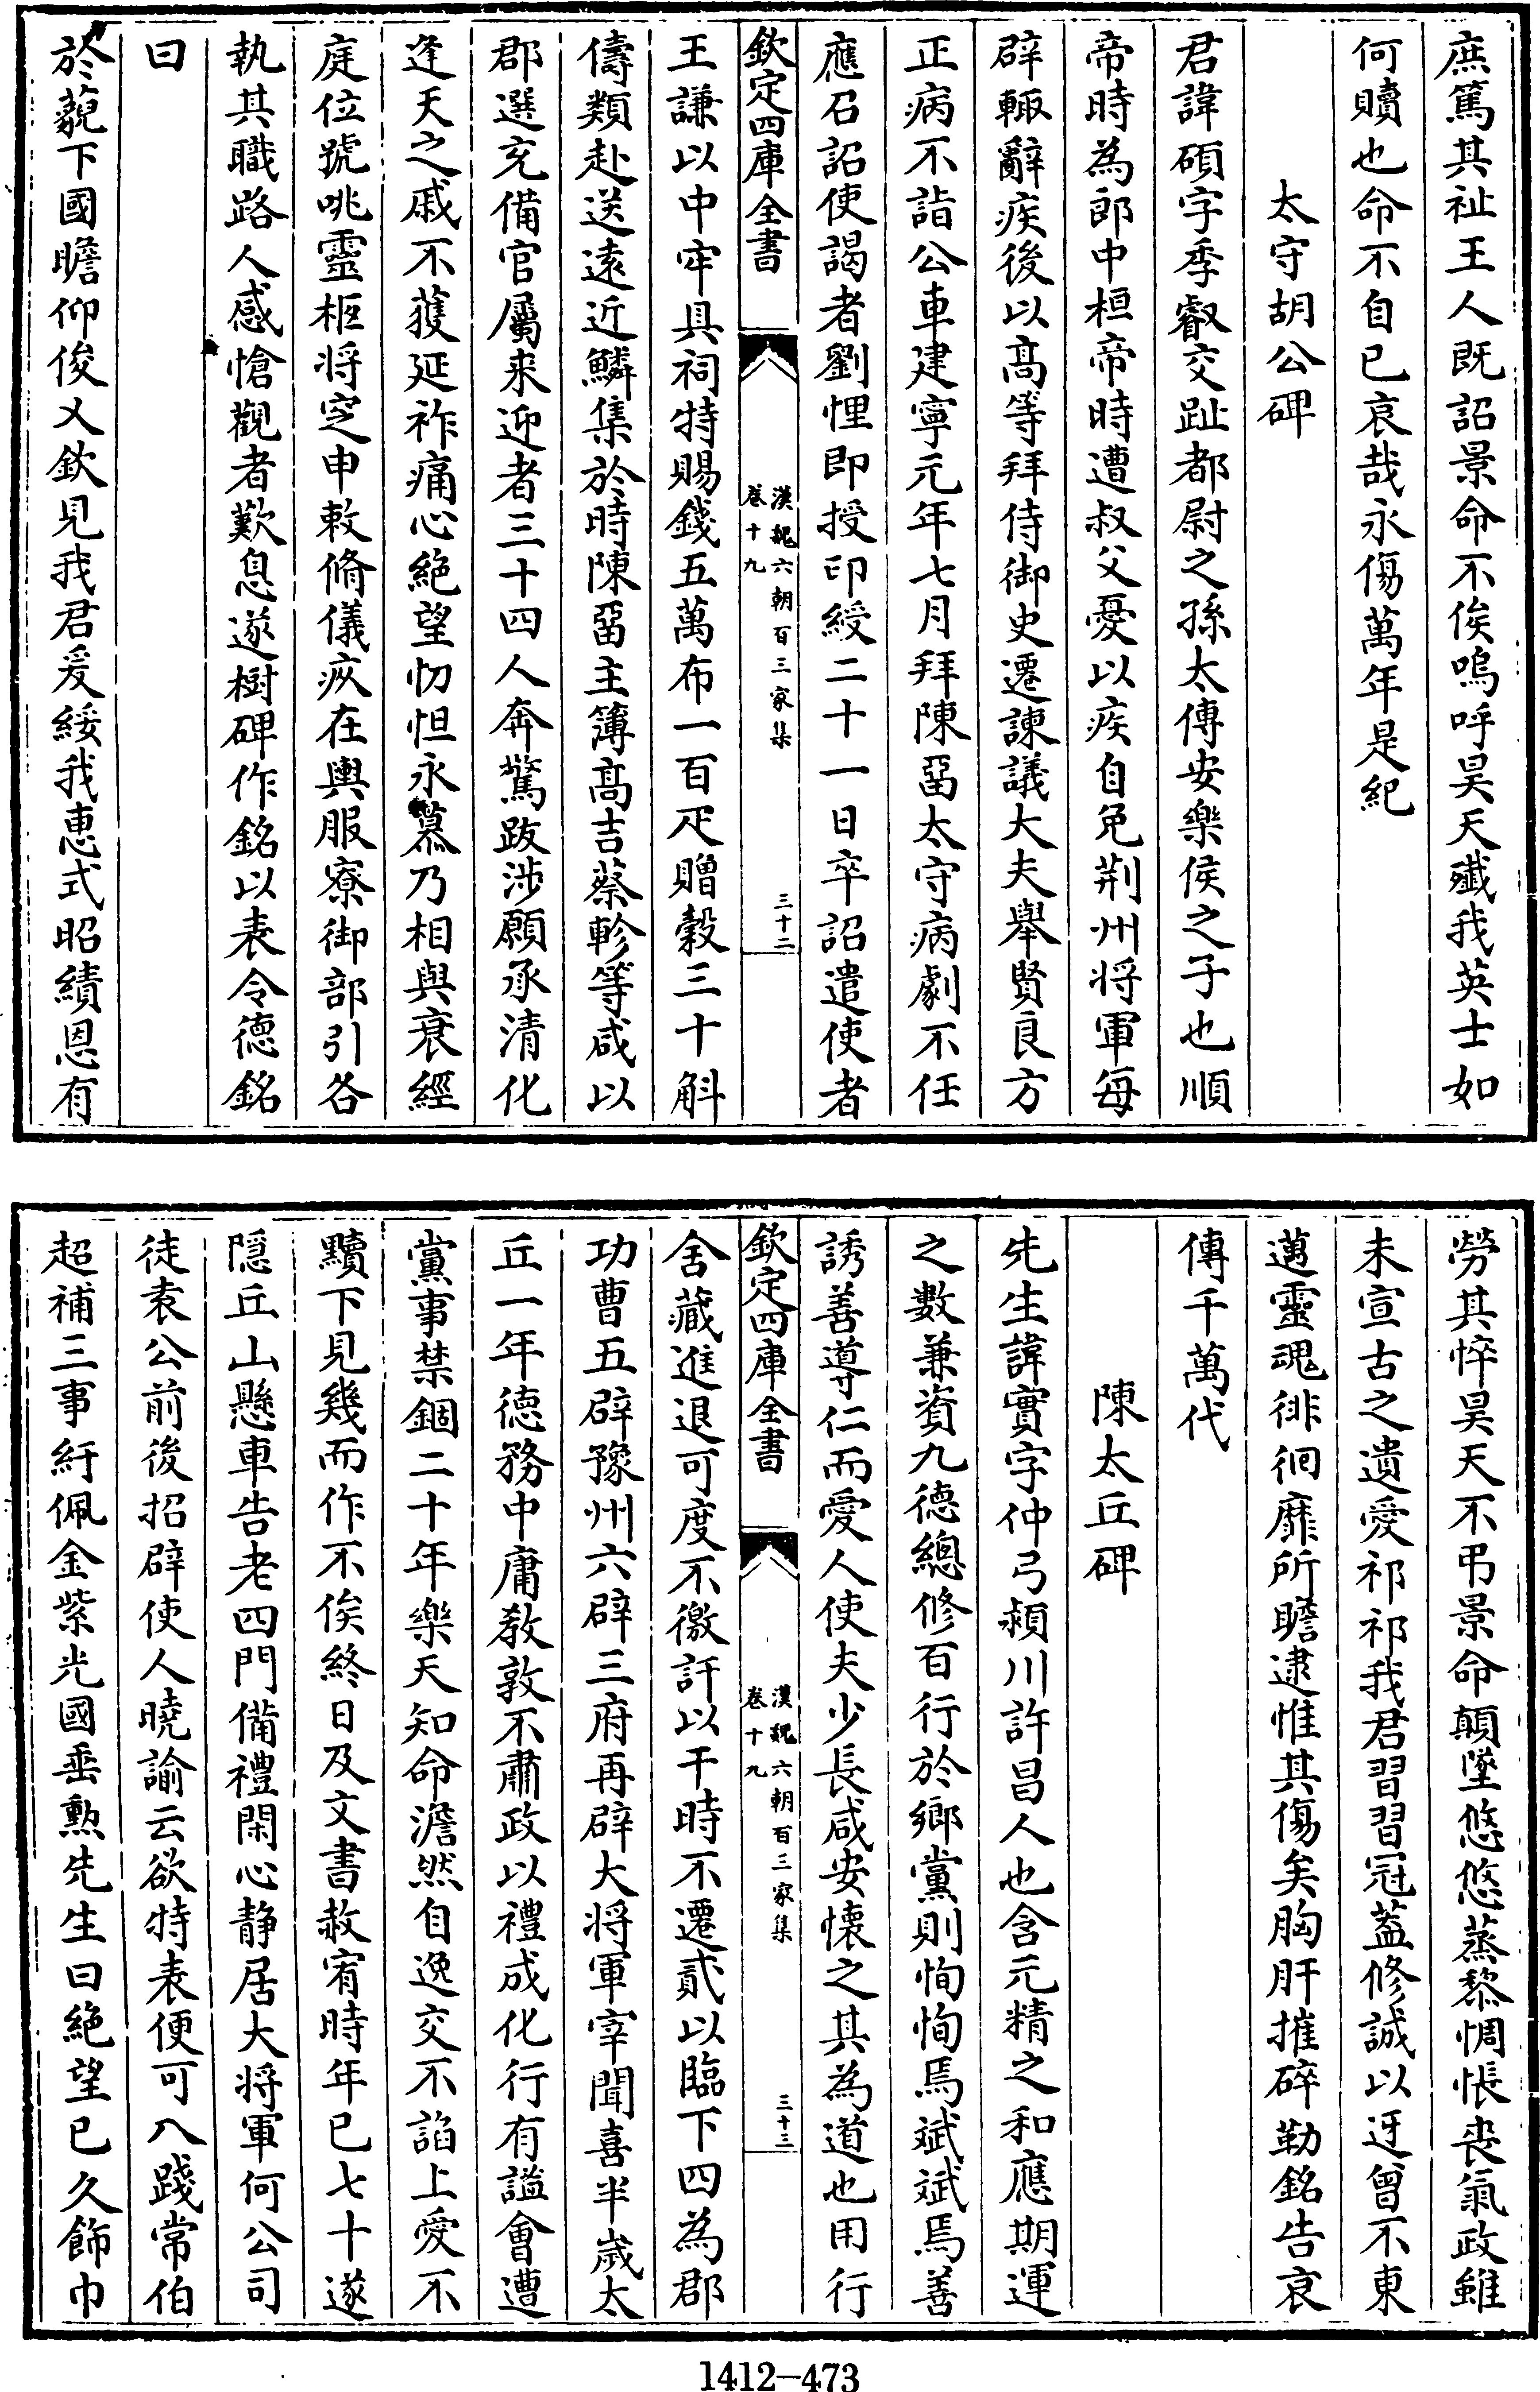 庶篤其祉王人既詔景命不俟嗚呼昊天殱我英士如
何贖也命不自已哀哉永傷萬年是紀
太守胡公碑
君諱碩字季叡交趾都尉之孫太傅安樂侯之子也順
帝時為郎中桓帝時遭叔父憂以疾自免荆州将軍每
辟輙辭疾後以髙等拜侍御史遷諫議大夫舉賢良方
正病不詣公車建寧元年七月拜陳畱太守病劇不任
應召詔使謁者劉悝即授印綬二十一日卒詔遣使者
欽定四庫全書
漢魏六朝百三家集
卷十九
三十二
王謙以中牢具祠特賜錢五萬布一百疋贈榖三十斛
儔類赴送遠近鱗集於時陳畱主簿髙吉蔡軫等咸以
郡選充備官屬来迎者三十四人奔驚跋涉願承清化
逢天之戚不獲延祚痛心絶望忉怛永慕乃相與衰經
庭位號咷靈柩将窆申敕脩儀疚在輿服寮御部引各
執其職路人感愴觀者歎息遂樹碑作銘以表令德銘
曰
於藐下國瞻仰俊乂欽見我君爰綏我惠式昭績恩有
勞其悴昊天不弔景命顛墜悠悠蒸黎惆悵喪氣政雖
未宣古之遺愛祁祁我君習習冠蓋修誠以迓曾不東
邁靈魂徘徊靡所瞻逮惟其傷矣胸肝摧碎勒銘告哀
傳千萬代
陳太丘碑
先生諱實字仲弓潁川許昌人也含元精之和應期運
之數兼資九德總修百行於鄉黨則恂恂焉斌斌焉善
誘善導仁而愛人使夫少長咸安懐之其為道也用行
欽定四庫全書
漢魏六朝百三家集
卷十九
三十三
舍藏進退可度不徼訐以干時不遷貳以臨下四為郡
功曹五辟豫州六辟三府再辟大将軍宰聞喜半歳太
丘一年德務中庸敎敦不肅政以禮成化行有謐會遭
黨事禁錮二十年樂天知命澹然自逸交不諂上愛不
黷下見幾而作不俟終日及文書赦宥時年已七十遂
隱丘山懸車告老四門備禮閑心静居大将軍何公司
徒袁公前後招辟使人曉諭云欲特表便可入踐常伯
超補三事紆佩金紫光國垂勲先生曰絶望已久飾巾
1412-473